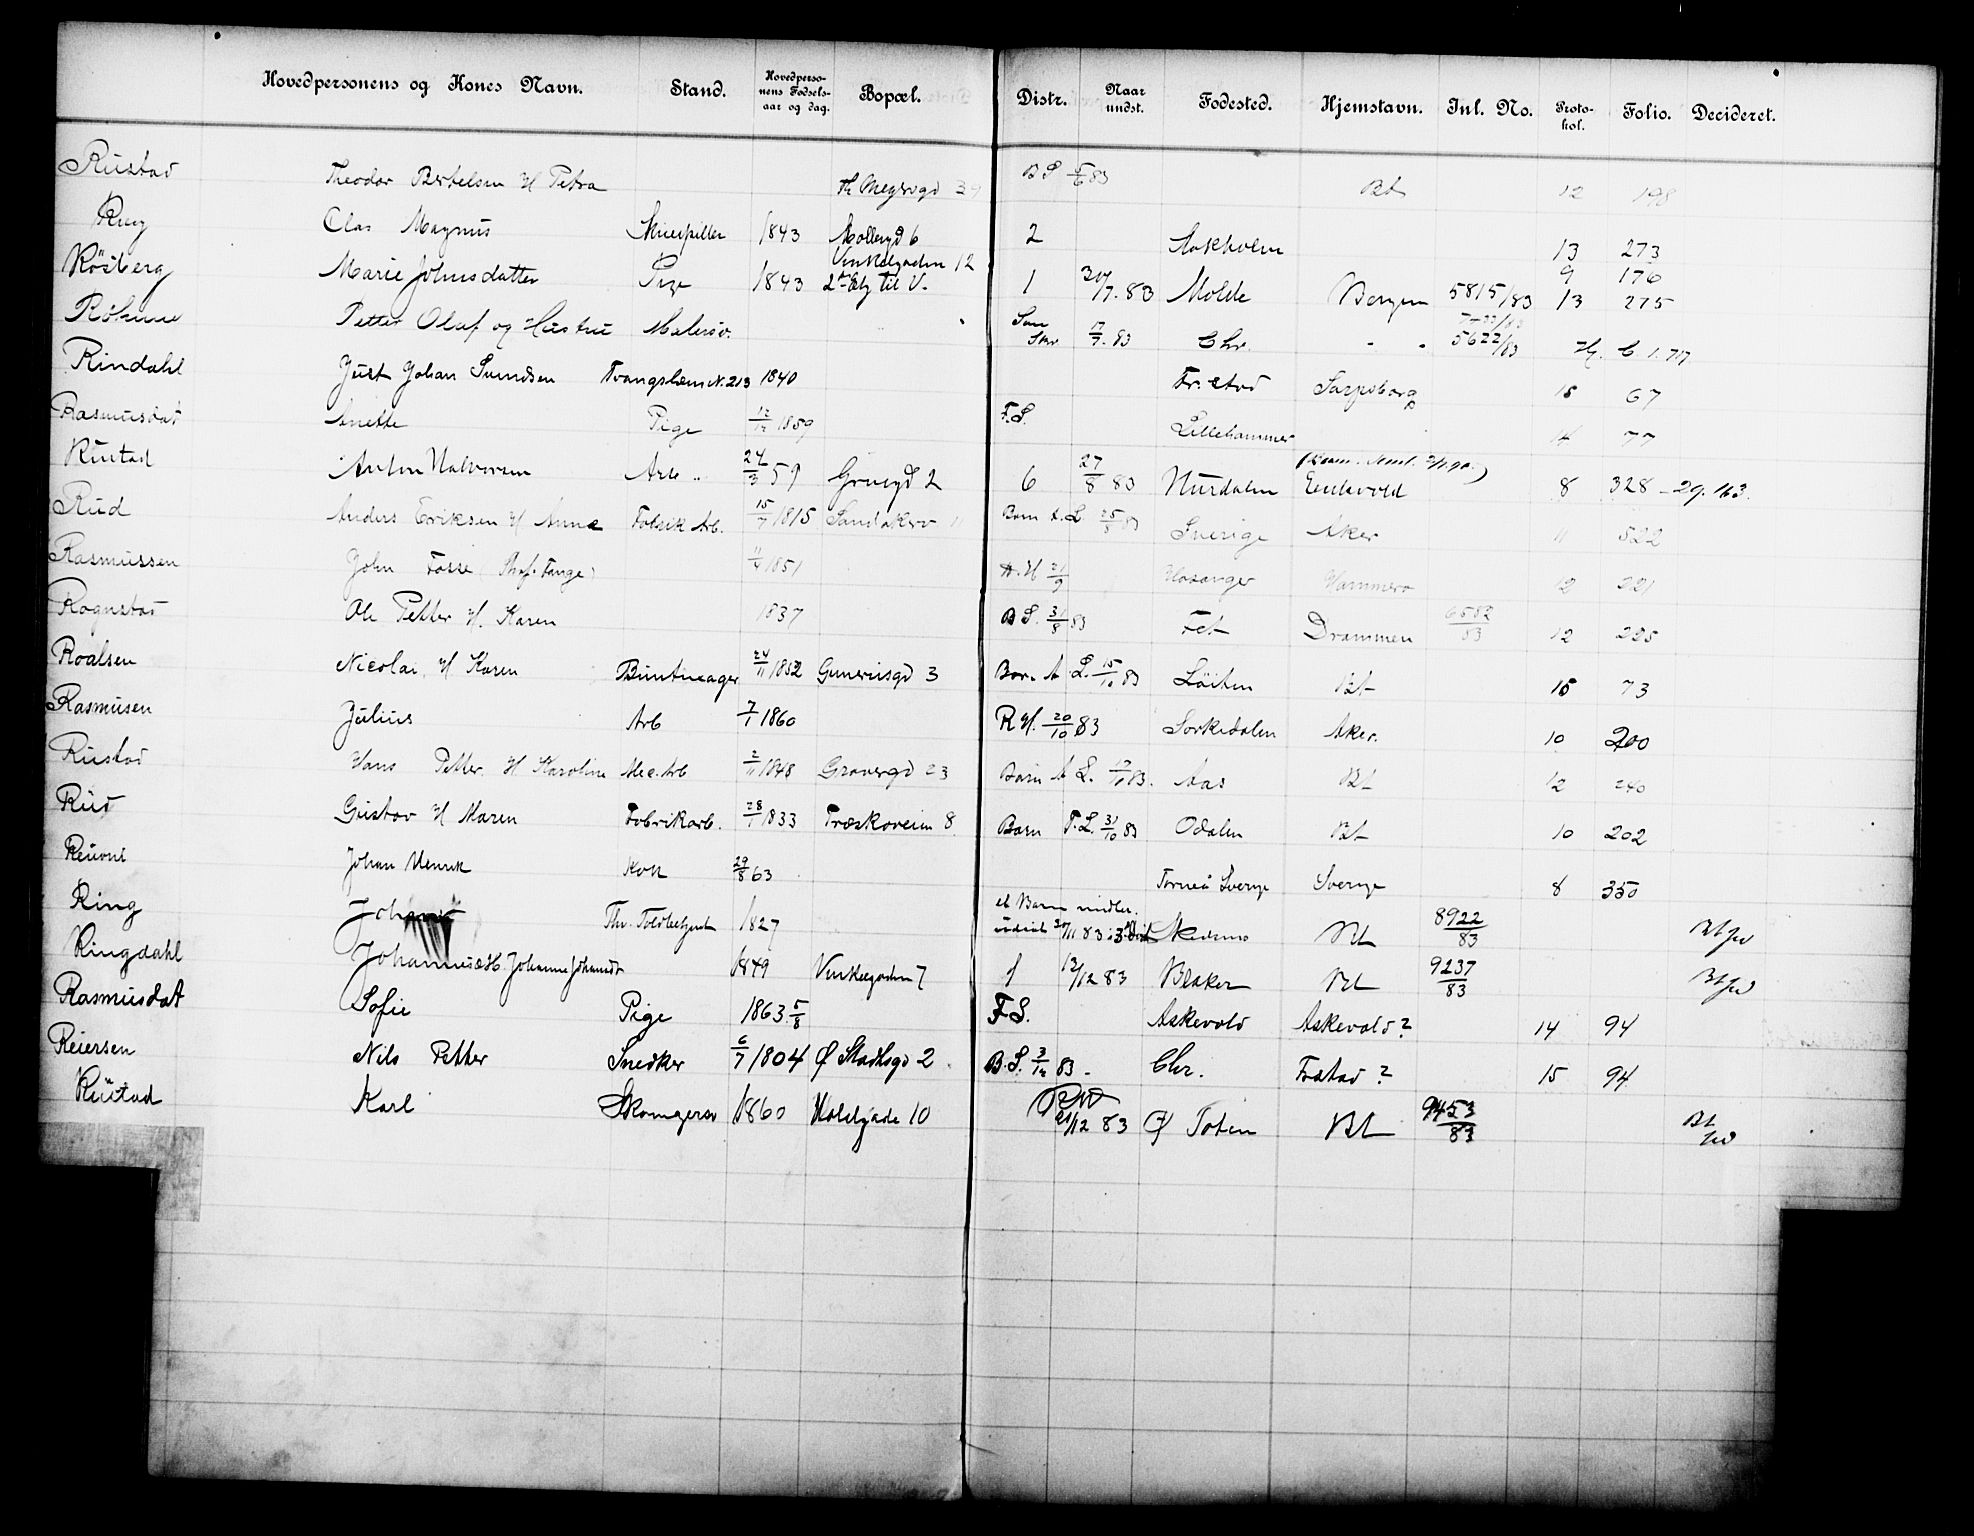 Hovedpersonens og Kones Navn. Stand. Hovedpersonens Fødselsaar og dag. Bopæl. Distr. Naar undst. Fødested. Hjemstavn. Inl. No. Protokol. Folio. Decideret.
Rustad Theodor Bertelsen H Petra Th Meyersgd BS 5/6 83 Bt 12 198
Ring Clas Magnus Skuespiller 1843 Møllergd 6 2 Stokholm 13 273
Røsberg Marie Johnsdatter Pige 1843 Vinkelgaden 12 2 Etg til V. 1 30/7. 83 Molde Bergen 5815/83 9 176 13 275
Petter Olaf og Hustru Malersv. 17/7. 83 Chr. " " 5622/83
Rindahl Just Johan Svendsen Tvangslem N. 213 1840 Fr.stad Sarpsborg 15 67
Rasmusdat Anette Pige 12/12 1859 F.S. Lillehammer 14 77
Rustad Anton Halvorsen Arb " 24/3 59 Gruegd 2 6 27/8 83 Hurdalen Eidsvold 8 328 - 29. 163.
Rud Anders Eriksen H Anne Fabrik Arb. 15/7 1815 Sandakerv 11 Barn A.L. 25/8 83 Sverige Aker 11 522
Rasmussen John Fosse 11/4 1851 A.H 21/9 Hosanger Hammero 12 221
Rognstad Ole Petter H. Karen 1837 BS. 31/8 83 Fet Drammen 6582/83 12 225
Roalsen Nicolai H Karen Buntmager 24/11 1852 Gunerusgd 3 Barn A. L. 15/10 83 Løiten Bt 15 73
Rasmusen Julius Arb 7/1 1860 R H. 20/10 83 Sorkedalen Aker. 10 200
Rustad Hans Petter H Karoline Mec. Arb 2/11 1848 Gravergd 23 Barn A L. 83. Aas Bt 12 240
Rud Gustav H Maren Fabrikarb. 28/1 1833 Træskoveien 8. Barn F.L. 31/10 83 Odalen Bt 10 202
Johan Henrik Kok 29/8 63 Torneå Sverge Sverge 8 350
Ring Johan Thv. Toldbetjent 1827 et Barn midler. udsat 30/11 83 Skedsmo Bt 8922/83 Bt
Ringdahl Johannes Johanne 1849 Vinkelgaden 7 1 12/12 83 Blaker Bt 9237/83 Bt
Rasmusdat Sofie Pige 1863 5/8 F S. Askevold Askevold? 14 94
Reiersen Nils Petter Snedker 6/7 1804 Ø Slotsgd 2 B.S. 3/12 83 - Chr. Fredstad ? 15 94
Rustad Karl Skomagersv 1860 Holstgade 10 21/12 83 Ø Toten Bt 9453/83 Bt